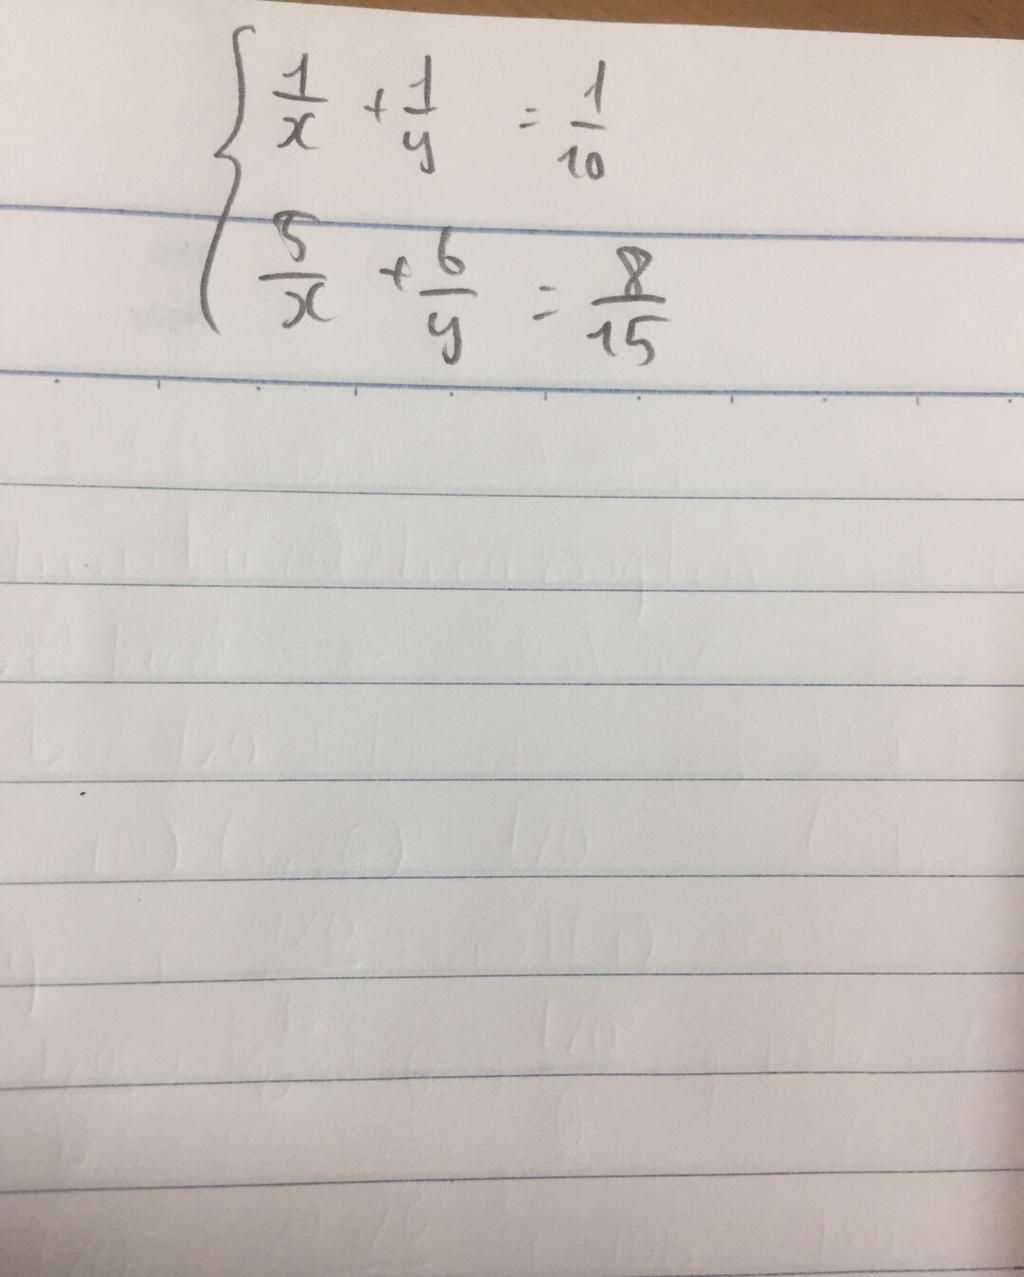 1/x + 1/y = 1/10
5/x + 6/y = 8/15